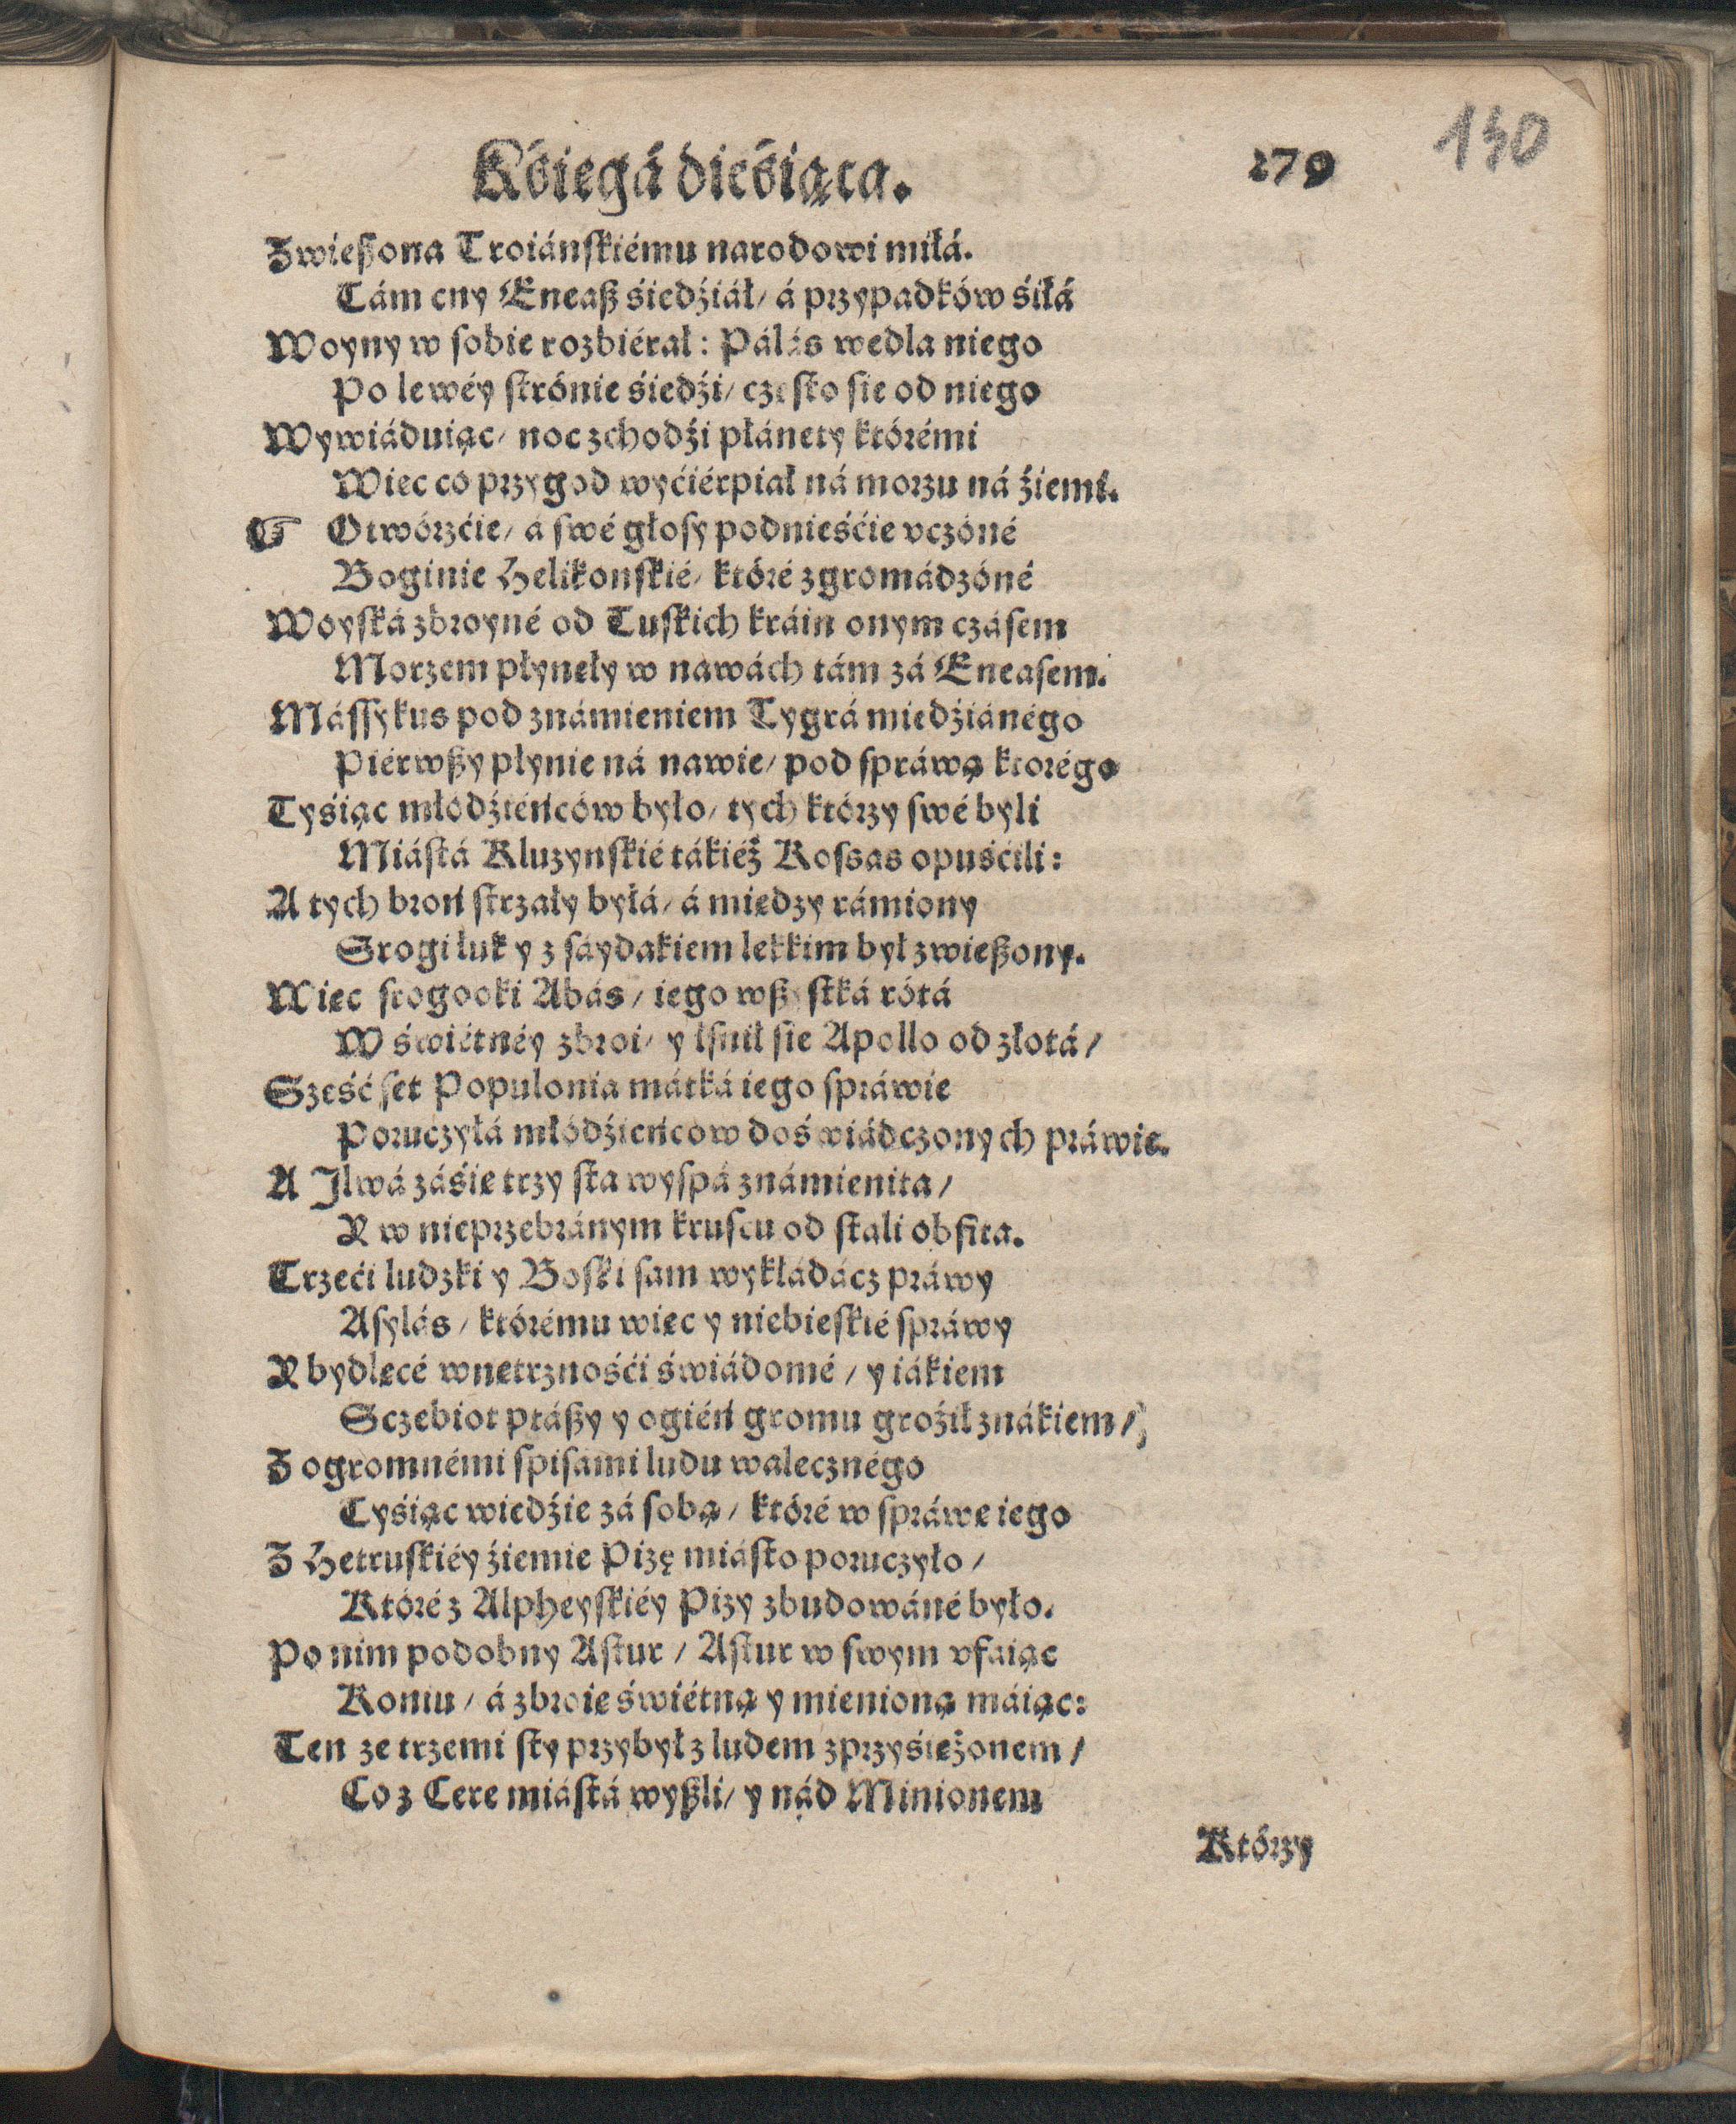 130
Kśięgá dieśiąta. 279
Zwießona Troiáńſkiému narodowi miłá.
Tám cny Eneaß śiedźiáł/ á przypadków śiłá
Woyny w ſobie rozbiérał: Pálás wedla niego
Po lewéy ſtrónie śiedźi/ cżęſto ſie od niego
Wywiáduiąc/ noc zchodźi płánety którémi
Wiec co przygod wyćiérpiał ná morzu ná źiemi.
☞ Otwórzćie/ á ſwé głoſy podnieśćie vczóné
Boginie Helikonſkié/ któré zgromádzóné
Woyſká zbroyné od Tuſkich kráin onym czáſem
Morzem płynęły w nawách tám zá Eneaſem.
Máſſykus pod známieniem Tygrá miedźiánégo
Piérwßy płynie ná nawie/ pod ſpráwą ktorégo
Tyśiąc młódźieńców było/ tych którzy ſwé byli
Miáſtá Kluzynſkié tákiéż Koſsas opuśćili:
A tych broń ſtrzały byłá/ á między rámiony
Srogi łuk y z ſáydakiem lekkim był zwießony.
Więc ſrogooki Abás/ iego wßyſtká rótá
W świétnéy zbroi/ y lſnił ſie Apollo od złotá/
Sześć ſet Populonia mátká iego ſpráwie
Poruczyłá młódźieńcow doświádczonych práwie.
A Jlwá záśie trzy ſta wyſpá známienita/
Y w nieprzebránym kruſcu od ſtali obfita.
Trzeći ludzki y Boſki ſam wykłádácz práwy
Aſylás/ którému więc y niebieſkié ſpráwy
Y bydlęcé wnetrznośći świádomé/ y iákiem
Sczebiot ptáßy y ogiéń gromu groźił znákiem/
Z ogromnémi ſpiſami ludu walecznégo
Tyśiąc wiedźie zá ſobą/ któré w ſpráwę iego
Z Hetruſkiéy źiemie Pizę miáſto poruczyło/
Któré z Alpheyſkiéy Pizy zbudowáné było.
Po nim podobny Aſtur/ Aſtur w ſwym vfaiąc
Koniu/ á zbroię świétną y mienioną máiąc:
Ten ze trzemi ſty przybył z ludem zprzyśiężonem/
Co z Cere miáſtá wyßli/ y nád Minionem
Którzy